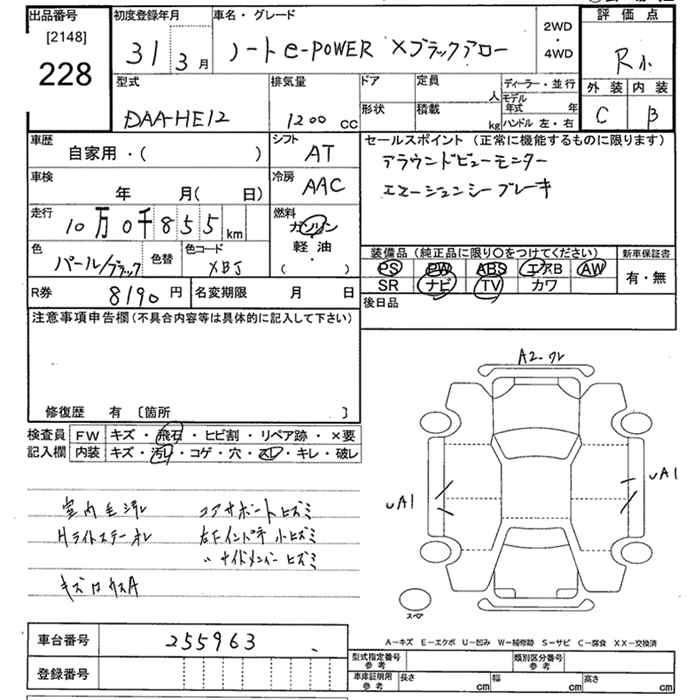 出品番号 初度登録年月 車名・グレード 2WD ・ 4WD 評価点
[2148]
228
31年 3月 ノート e-POWER Xブラックアロー
R小
型式 排気量 ドア 定員 人 ディーラー・並行 外装 内装
DAA-HE12 1200 cc 形状 積載 kg モデル年式 年 ハンドル 左・右 C B
車歴 自家用・( ) シフト AT セールスポイント (正常に機能するものに限ります)
アラウンドビューモニター
車検 年 月( 日) 冷房 AAC
エマージェンシーブレーキ
走行 10万0千855km 燃料 ガソリン・軽油・( )
色 パール/ブラック 色替 色コード XBJ
装備品 (純正品に限り○をつけてください) 新車保証書
PS PW ABS エアB AW 有・無
SR ナビ TV カワ
R券 8190円 名変期限 月 日 後日品
注意事項申告欄 (不具合内容等は具体的に記入して下さい)
修復歴 有 [箇所 ]
検査員記入欄 FW キズ・飛石・ヒビ割・リペア跡・×要
内装 キズ・汚レ・コゲ・穴・スレ・キレ・破レ
A2-ワレ
uA1
uA1
室内毛汚レ コアサポートヒズミ
Hライトステーオレ 右Fインパネ小ヒズミ
〃 サイドメンバーヒズミ
スペア
A-キズ E-エクボ U-凹み W-補修跡 S-サビ C-腐食 XX-交換済
車台番号 255963
登録番号
型式指定番号 参考 類別区分番号 参考
車庫証明用 参考 長さ cm 幅 cm 高さ cm